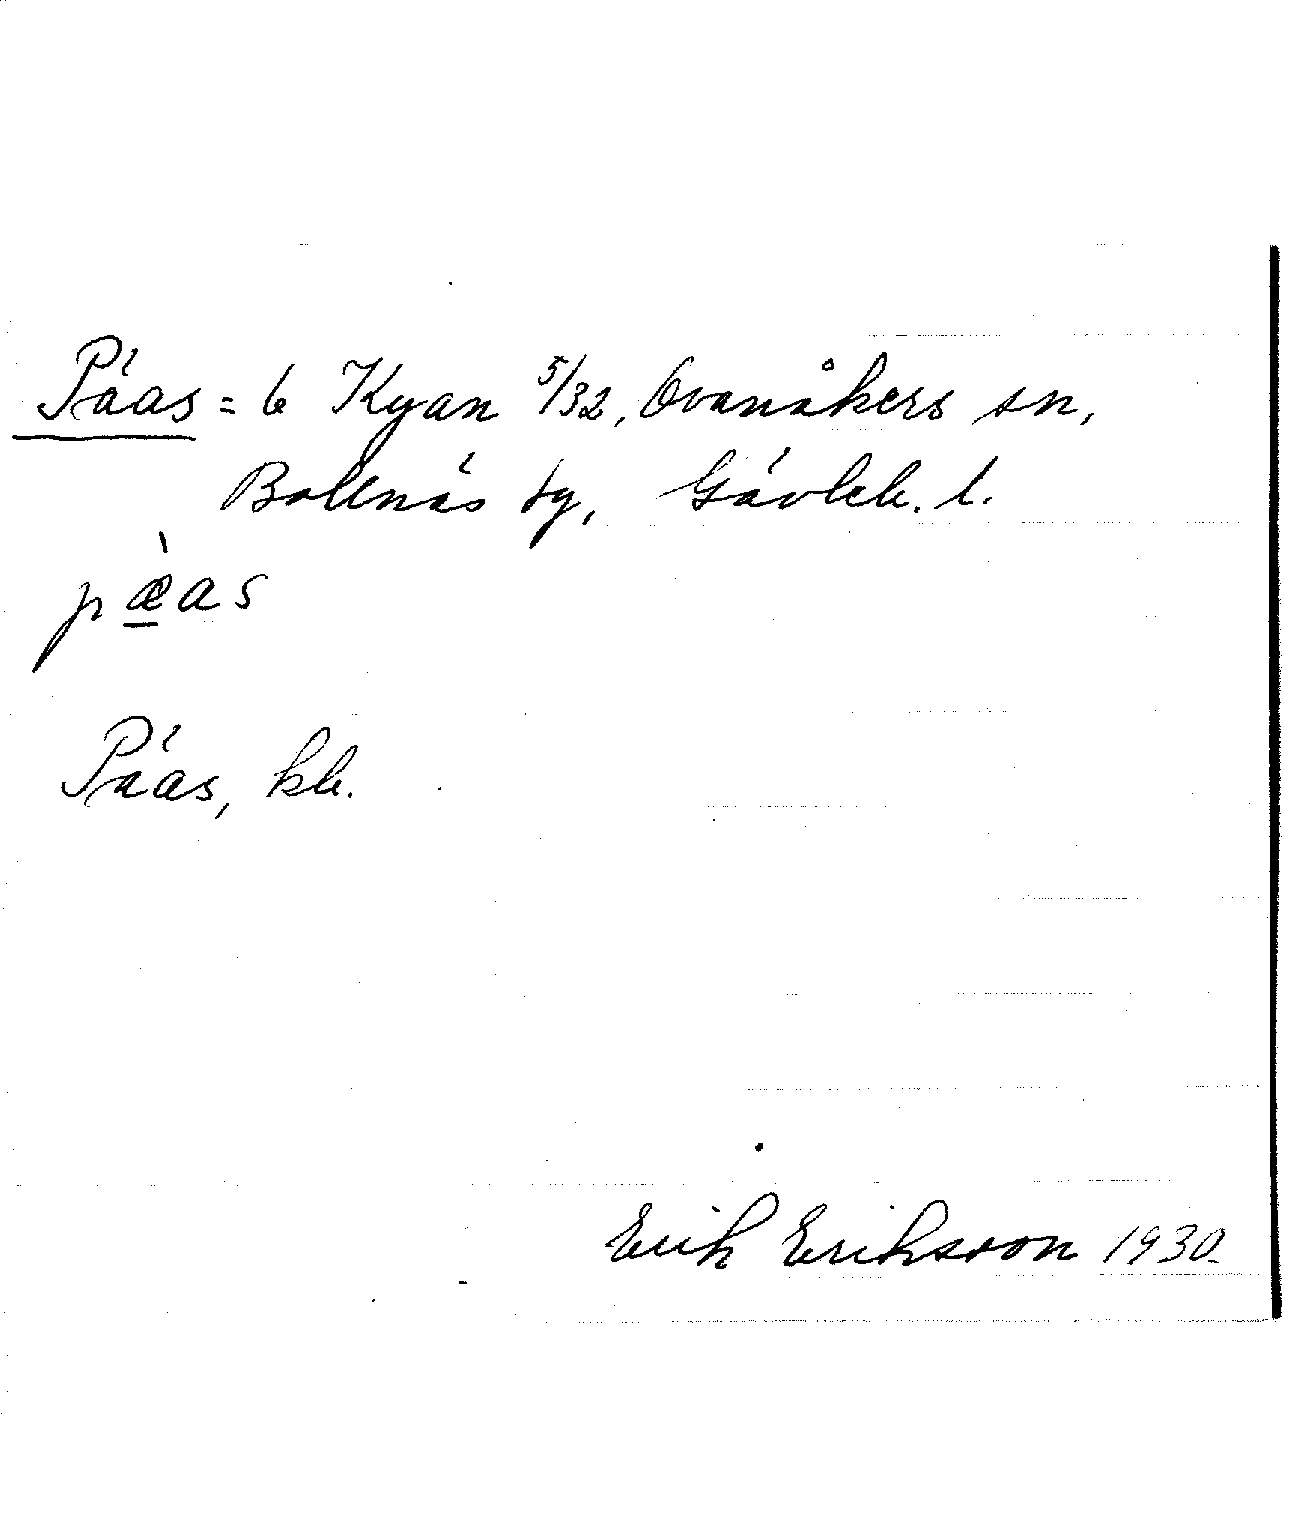 Päas = 6 Kyan 5/32, Ovanåkers sn,
Bollnäs tg, Gävleb. l.
pæ̀as
Päas, kb.
Erik Eriksson 1930.